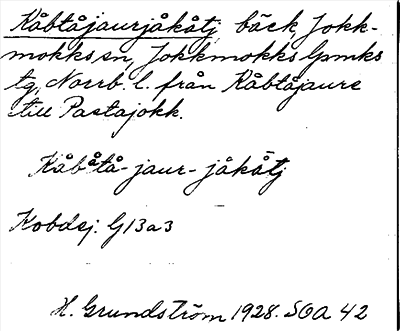 Kåbtåjaurjåkåtj, bäck, Jokk-
mokks sn, Jokkmokks lpmks
tg, Norrb. l. från Kåbtåjaure
till Pastajokk.
Kåbåtå-jaur-jåkåtj
Kobdej: G13a3
H. Grundström 1928. SOA 42